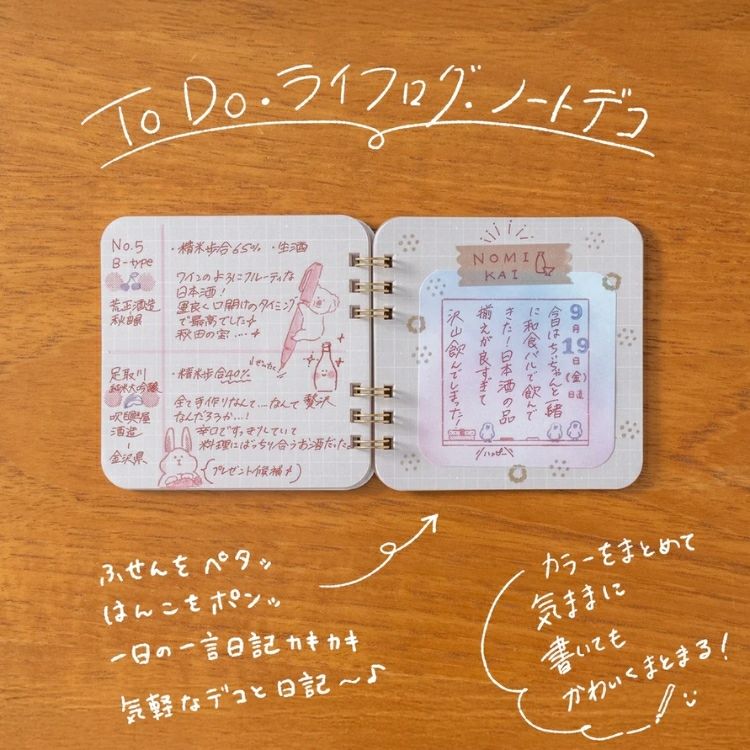 To Do・ライフログ・ノートデコ
No.5
B-type
荒正酒造
秋田県
・精米歩合65% ・生酒
ワインのようにフルーティな
日本酒!
運良く口開けのタイミング
で最高でした
秋田の宝…
足取川
純米大吟醸
吹興屋
酒造
金沢県
・精米歩合40%
ぜいたく
全て手作りなんて…なんて贅沢
なんだろうか…!
辛口ですっきりしていて
料理にばっちり合うお酒だった
プレゼント候補
NOMI
KAI
9月19日(金)
今日はちぃちゃんと一緒
に和食バルで飲んで
きた!日本酒の品
揃えが良すぎて
沢山飲んでしまった!
ふせんをペタッ
はんこをポンッ
一日の一言日記カキカキ
気軽なデコと日記〜♪
カラーをまとめて
気ままに
書いても
かわいくまとまる!